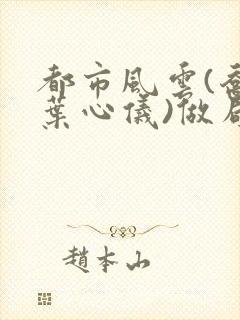 都市風雲(
葉心儀)做
趙本山